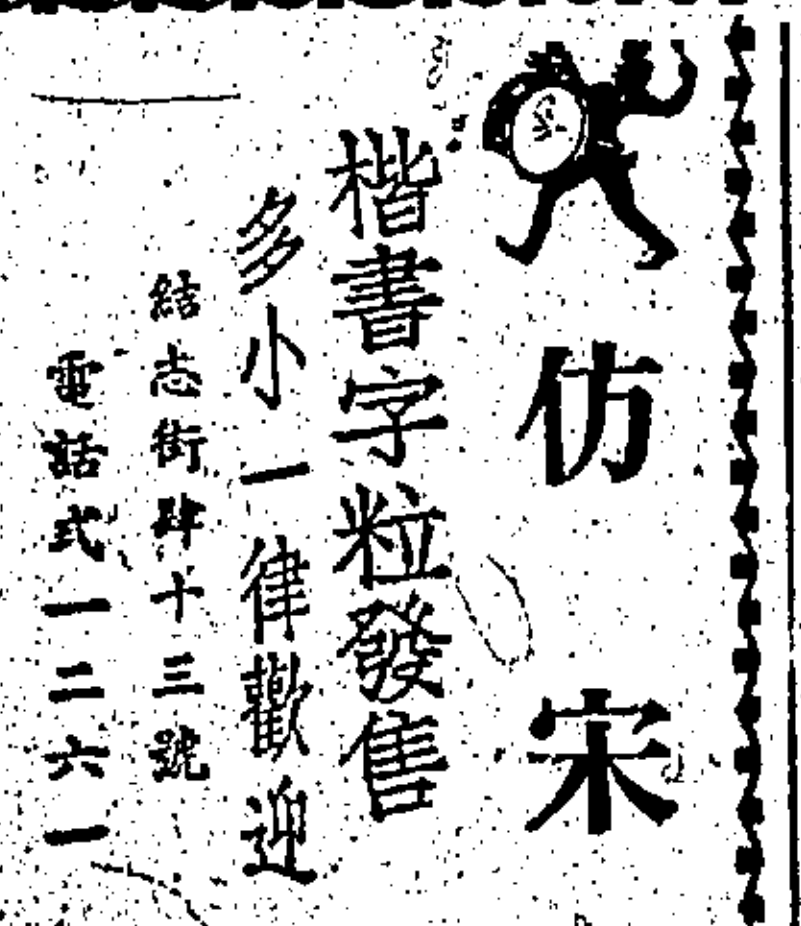 仿宋
楷書字粒發售
多小一律歡迎
結志街肆十三號
電話式一二六一